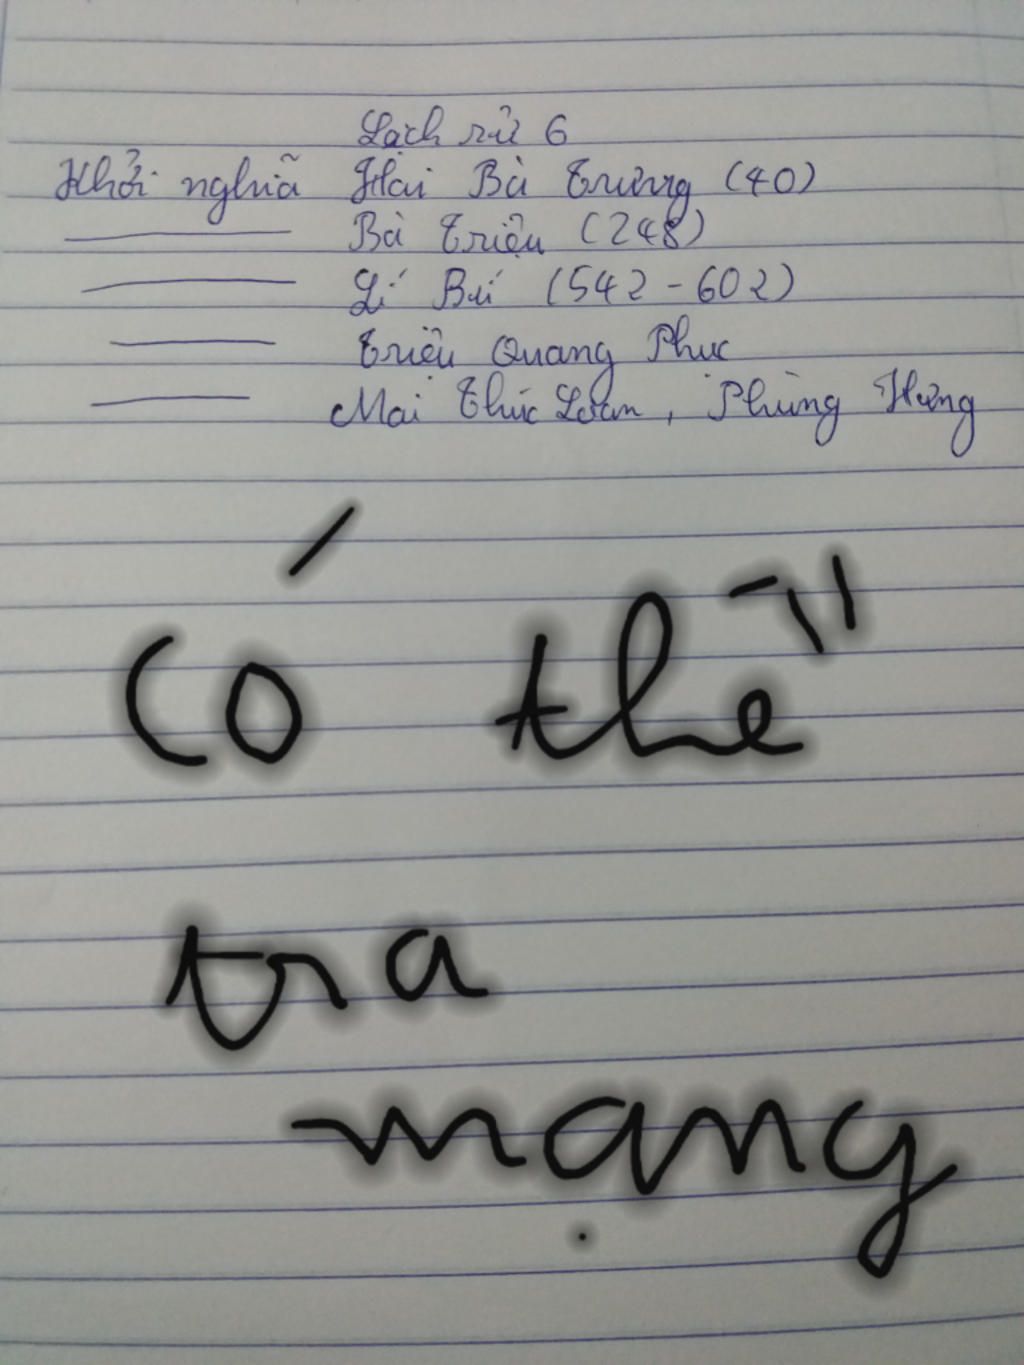 Lịch sử 6
Khởi nghĩa Hai Bà Trưng (40)
Bà Triệu (248)
Lí Bí (542-602)
Triệu Quang Phục
Mai Thúc Loan, Phùng Hưng
Có thể
tra
mạng